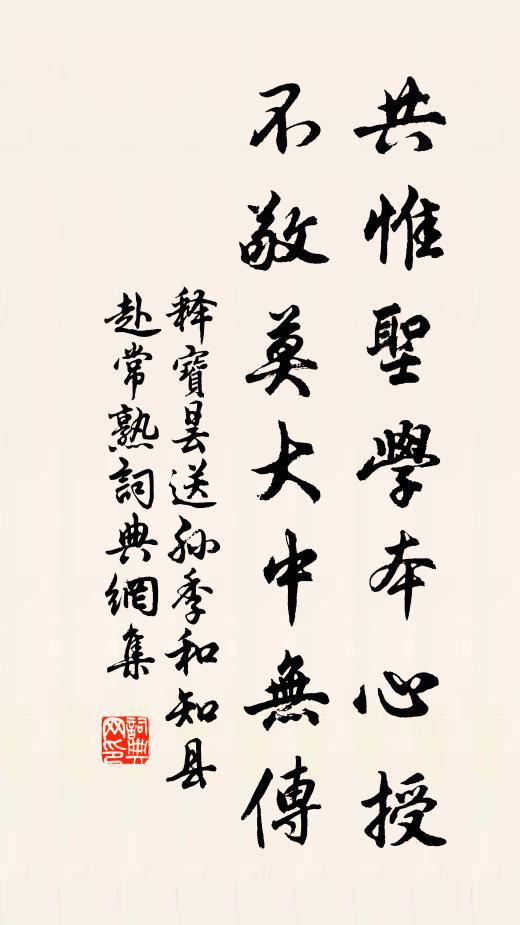 共惟聖學本心授
不敬莫大中無傳
释寶曇送孙季和知县
赴常熟詞典網集
詞典网印